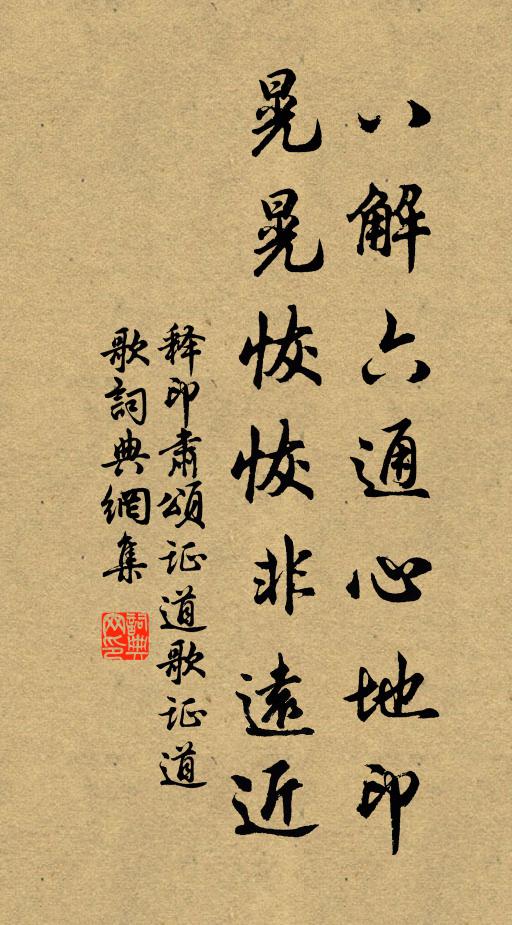 八解六通心地印
晃晃恢恢非遠近
释印肃頌证道歌证道
歌詞典網集
詞典
网印